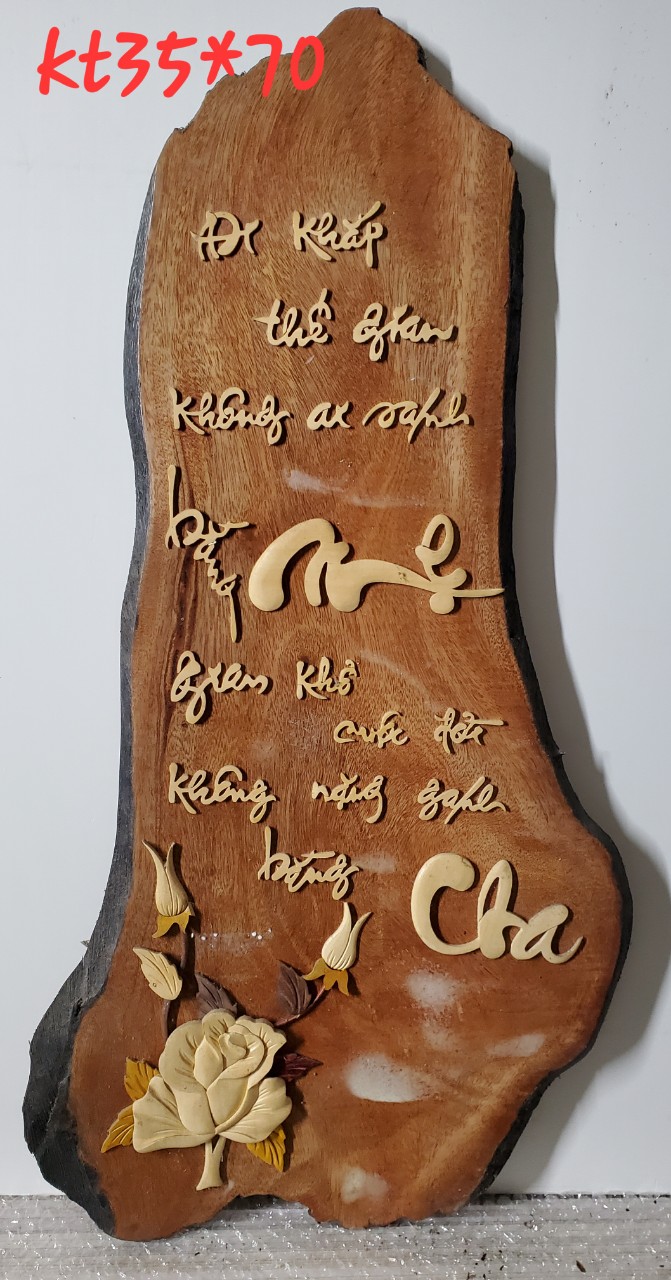 kt35*70
Đi Khắp
thế gian
không ai sánh
bằng Mẹ
gian khổ
cuộc đời
không nặng gánh
bằng Cha